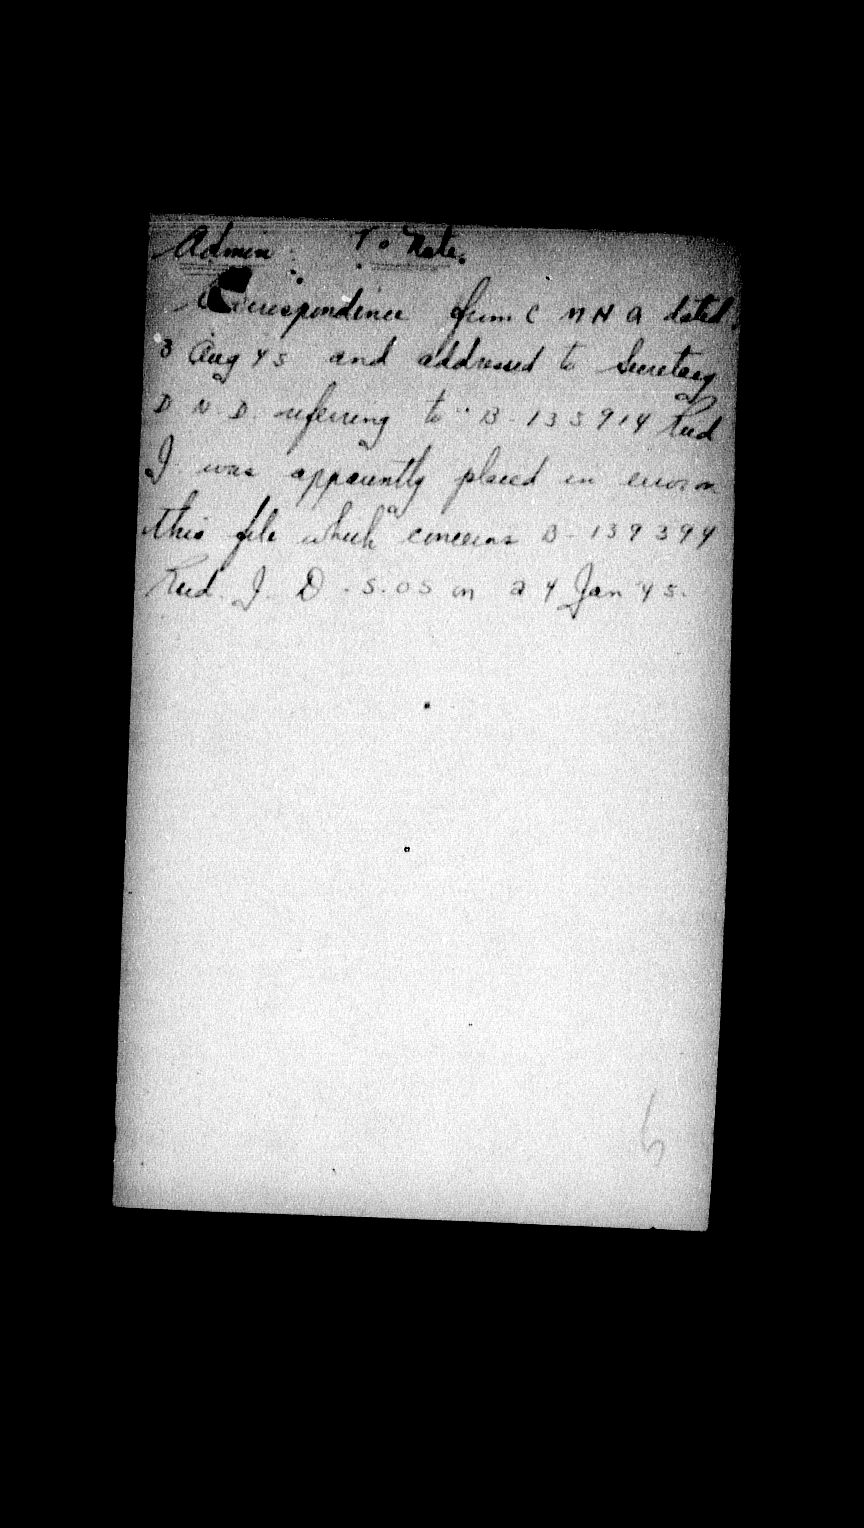 Admin : To Note.
Correspondence from C M H Q dated
3 Aug 45 and addressed to Secretary
D N D. referring to B-135914 Reid
J was apparently placed in error on
this file which concerns B-139394
Reid. J. D - S.O.S on 24 Jan 45.